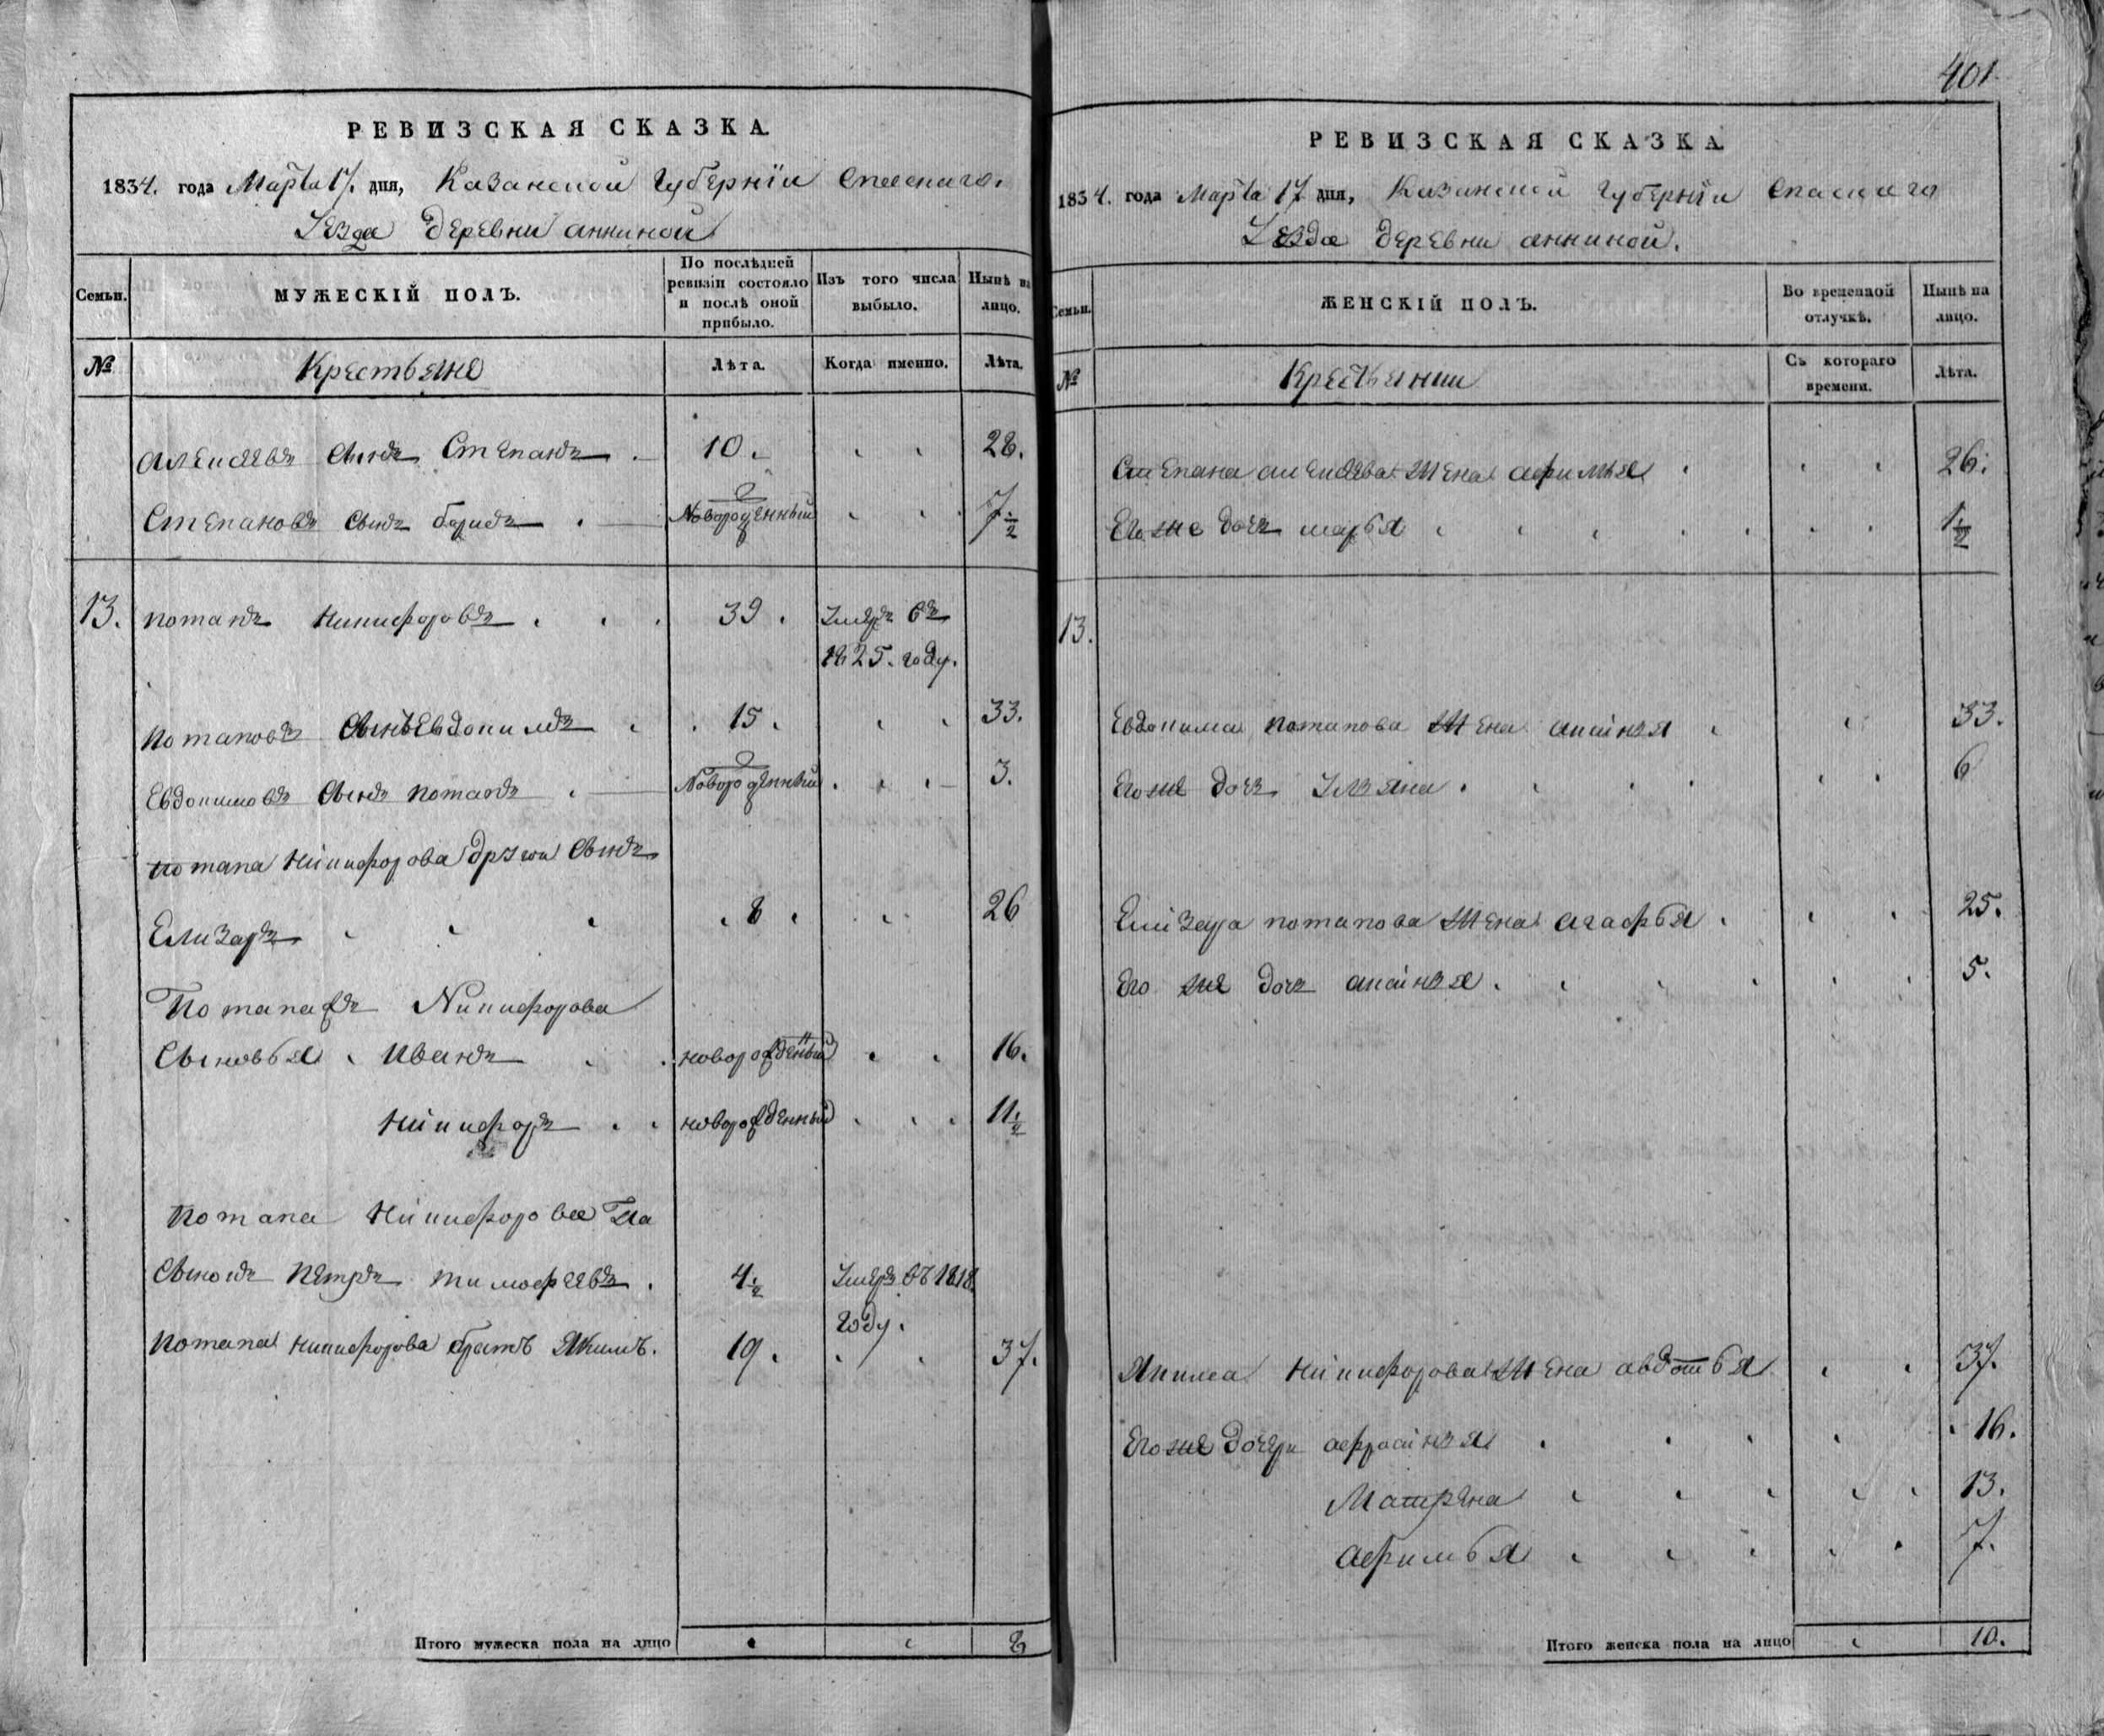 РЕВИЗСКАЯ СКАЗКА.
1834. года Марта 17. дня, Казанской губернiи Спаскаго.
Уезда деревни анниной
Семьи. МУЖЕСКІЙ ПОЛЪ. По послѣдней ревизіи состояло и послѣ оной прибыло. Изъ того числа выбыло. Нынѣ на лицо.
№ Крестьяне Лѣта. Когда именно. Лѣта.
алексѣевъ сынъ Степанъ 10. 28.
Степановъ сынъ борисъ Новорожденный 7 1/2
13. потапъ никифоровъ 39. Умеръ въ
1825. году.
потаповъ сынъ Евдокимъ 15. 33.
Евдокимовъ сынъ потапъ Новорожденный 3.
потапа никифорова другой сынъ
Елизаръ 8 26
Потапа жъ Никифорова
Сыновья Иванъ новорожденный 16.
никифоръ новорожденный 11 1/2
потапа никифорова
петръ тимофеевъ. 4 1/2 Умеръ въ 1818.
году.
потапа никифорова братъ Якимъ. 19. 37.
Итого мужеска пола на лицо 8
401
РЕВИЗСКАЯ СКАЗКА.
1834. года Марта 17 дня, Казанской губернiи Спаскаго
Уезда деревни анниной.
Семьи. ЖЕНСКІЙ ПОЛЪ. Во временной отлучкѣ. Нынѣ на лицо.
№ Крестьянки Съ котораго времени. Лѣта.
Степана алексѣева жена афимья 26.
Егоже дочь марья 1 1/2
13.
Евдокима потапова жена аксинья 33.
Егоже дочь Ульяна 6
Елизара потапова жена агафья 25.
Его же дочь аксинья 5.
Якима никифорова жена авдотья 37.
Егоже дочери афросинья 16.
Матрена 13.
афимья 7.
Итого женска пола на лицо 10.